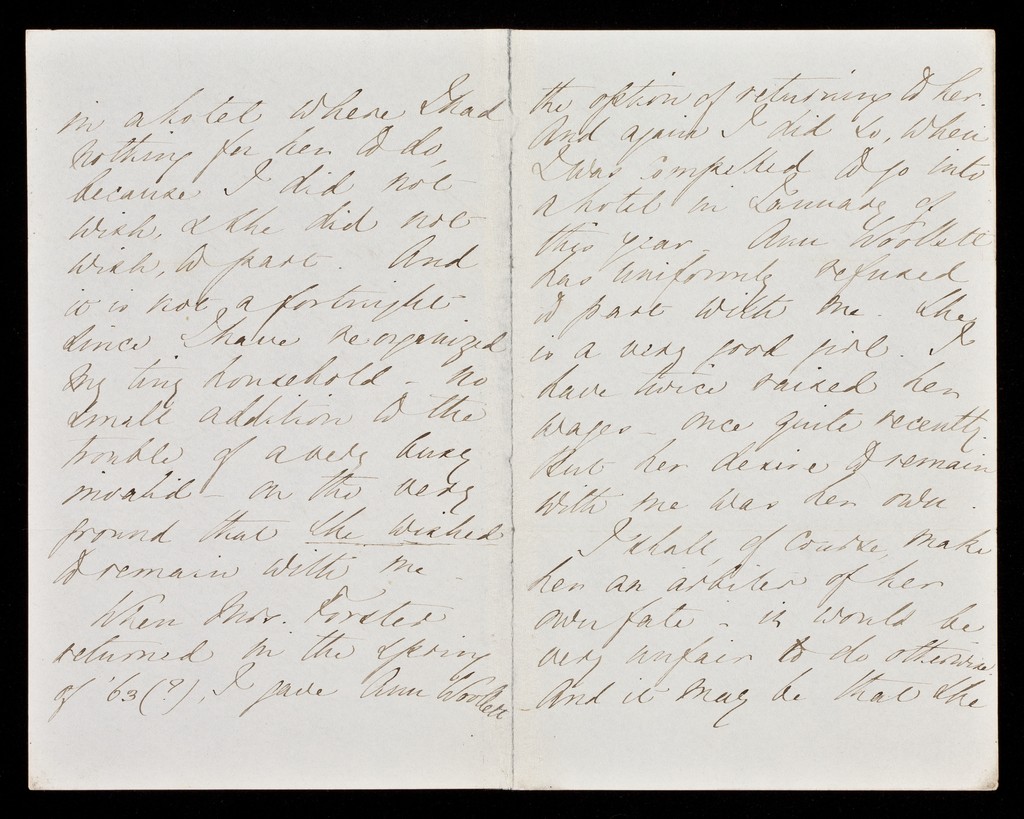 in a hotel where I had
nothing for her to do,
because I did not
wish, & she did not
wish, to part. And
it is not a fortnight
since I have reorganized
my tiny household - no
small addition to the
trouble of a very busy
invalid - on the very
ground that she wished
to remain with me -
When Mrs. Forster
returned in the Spring
of '63 (?), I gave Ann Woollett
the option of returning to her.
And again I did so, when
I was compelled to go into
a hotel in January of
this year - Ann Woollett
has uniformly refused
to part with me. She
is a very good girl. I
have twice raised her
wages - once quite recently.
But her desire to remain
with me was her own.
I shall, of course, make
her an arbiter of her
own fate - it would be
very unfair to do otherwise.
And it may be that she